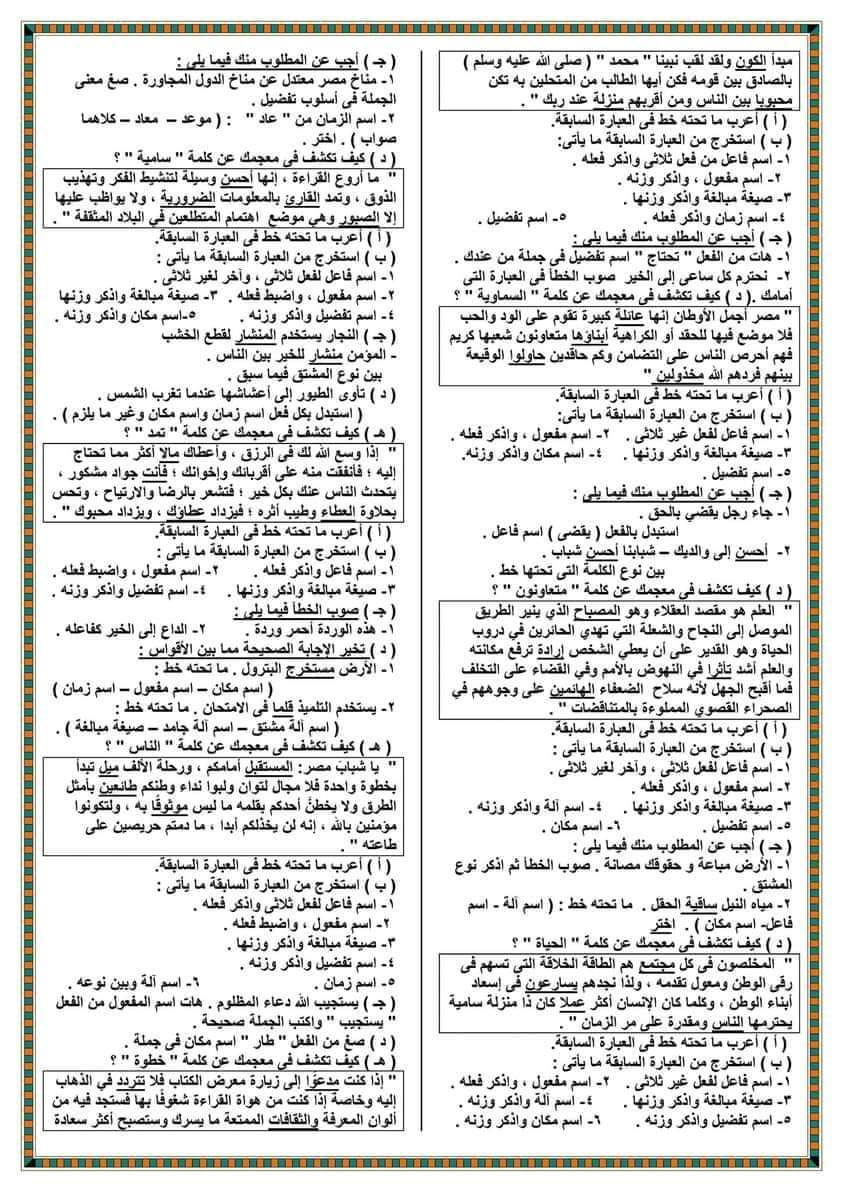 مبدأ الكون ولقد لقب نبينا " محمد " ( صلى الله عليه وسلم )
بالصادق بين قومه فكن أيها الطالب من المتحلين به تكن
محبوبا بين الناس ومن أقربهم منزلة عند ربك " .
( أ ) أعرب ما تحته خط فى العبارة السابقة.
( ب ) استخرج من العبارة السابقة ما يأتى:
١- اسم فاعل من فعل ثلاثى واذكر فعله .
٢- اسم مفعول ، واذكر وزنه .
٣- صيغة مبالغة واذكر وزنها .
٤- اسم زمان واذكر فعله . ٥- اسم تفضيل .
( جـ ) أجب عن المطلوب منك فيما يلى :
١- هات من الفعل " تحتاج " اسم تفضيل فى جملة من عندك .
٢- نحترم كل ساعى إلى الخير صوب الخطأ فى العبارة التى
أمامك .( د ) كيف تكشف فى معجمك عن كلمة " السماوية " ؟
" مصر أجمل الأوطان إنها عائلة كبيرة تقوم على الود والحب
فلا موضع فيها للحقد أو الكراهية أبناؤها متعاونون شعبها كريم
فهم أحرص الناس على التضامن وكم حاقدين حاولوا الوقيعة
بينهم فردهم الله مخذولين "
( أ ) أعرب ما تحته خط فى العبارة السابقة.
( ب ) استخرج من العبارة السابقة ما يأتى:
١- اسم فاعل لفعل غير ثلاثى . ٢- اسم مفعول ، واذكر فعله .
٣- صيغة مبالغة واذكر وزنها . ٤- اسم مكان واذكر وزنه.
٥- اسم تفضيل .
( جـ ) أجب عن المطلوب منك فيما يلى :
١- جاء رجل يقضي بالحق .
استبدل بالفعل ( يقضى ) اسم فاعل .
٢- أحسن إلى والديك – شبابنا أحسن شباب .
بين نوع الكلمة التى تحتها خط .
( د ) كيف تكشف فى معجمك عن كلمة " متعاونون " ؟
" العلم هو مقصد العقلاء وهو المصباح الذي ينير الطريق
الموصل إلى النجاح والشعلة التي تهدي الحائرين في دروب
الحياة وهو القدير على أن يعطي الشخص إرادة ترفع مكانته
والعلم أشد تأثرا في النهوض بالأمم وفي القضاء على التخلف
فما أقبح الجهل لأنه سلاح الضعفاء الهائمين على وجوههم في
الصحراء القصوي المملوءة بالمتناقضات " .
( أ ) أعرب ما تحته خط فى العبارة السابقة.
( ب ) استخرج من العبارة السابقة ما يأتى :
١- اسم فاعل لفعل ثلاثى ، وآخر لغير ثلاثى .
٢- اسم مفعول ، واذكر فعله .
٣- صيغة مبالغة واذكر وزنها . ٤- اسم آلة واذكر وزنه .
٥- اسم تفضيل . ٦- اسم مكان .
( جـ ) أجب عن المطلوب منك فيما يلى :
١- الأرض مباعة و حقوقك مصانة . صوب الخطأ ثم اذكر نوع
المشتق .
٢- مياه النيل ساقية الحقل . ما تحته خط : ( اسم آلة - اسم
فاعل- اسم مكان ) . اختر
( د ) كيف تكشف فى معجمك عن كلمة " الحياة " ؟
" المخلصون فى كل مجتمع هم الطاقة الخلاقة التى تسهم فى
رقى الوطن ومعول تقدمه ، ولذا نجدهم يسارعون فى إسعاد
أبناء الوطن ، وكلما كان الإنسان أكثر عملا كان ذا منزلة سامية
يحترمها الناس ومقدرة على مر الزمان " .
( أ ) أعرب ما تحته خط فى العبارة السابقة.
( ب ) استخرج من العبارة السابقة ما يأتى :
١- اسم فاعل لفعل غير ثلاثى . ٢- اسم مفعول ، واذكر فعله .
٣- صيغة مبالغة واذكر وزنها . ٤- اسم آلة واذكر وزنه .
٥- اسم تفضيل واذكر وزنه . ٦- اسم مكان واذكر وزنه .
( جـ ) أجب عن المطلوب منك فيما يلى :
١- مناخ مصر معتدل عن مناخ الدول المجاورة . صغ معنى
الجملة فى أسلوب تفضيل .
٢- اسم الزمان من " عاد " : ( موعد – معاد – كلاهما
صواب ) . اختر .
( د ) كيف تكشف فى معجمك عن كلمة " سامية " ؟
" ما أروع القراءة ، إنها أحسن وسيلة لتنشيط الفكر وتهذيب
الذوق ، وتمد القارئ بالمعلومات الضرورية ، ولا يواظب عليها
إلا الصبور وهي موضع اهتمام المتطلعين في البلاد المثقفة " .
( أ ) أعرب ما تحته خط فى العبارة السابقة.
( ب ) استخرج من العبارة السابقة ما يأتى :
١- اسم فاعل لفعل ثلاثى ، وآخر لغير ثلاثى .
٢- اسم مفعول ، واضبط فعله . ٣- صيغة مبالغة واذكر وزنها
٤- اسم تفضيل واذكر وزنه . ٥-اسم مكان واذكر وزنه .
( جـ ) النجار يستخدم المنشار لقطع الخشب
- المؤمن منشار للخير بين الناس .
بين نوع المشتق فيما سبق .
( د ) تأوى الطيور إلى أعشاشها عندما تغرب الشمس .
( استبدل بكل فعل اسم زمان واسم مكان وغير ما يلزم ) .
( هـ ) كيف تكشف فى معجمك عن كلمة " تمد " ؟
" إذا وسع الله لك فى الرزق ، وأعطاك مالا أكثر مما تحتاج
إليه ؛ فأنفقت منه على أقربائك وإخوانك ؛ فأنت جواد مشكور ،
يتحدث الناس عنك بكل خير ؛ فتشعر بالرضا والارتياح ، وتحس
بحلاوة العطاء وطيب أثره ؛ فيزداد عطاؤك ، ويزداد محبوك " .
( أ ) أعرب ما تحته خط فى العبارة السابقة.
( ب ) استخرج من العبارة السابقة ما يأتى :
١- اسم فاعل واذكر فعله . ٢- اسم مفعول ، واضبط فعله .
٣- صيغة مبالغة واذكر وزنها . ٤- اسم تفضيل واذكر وزنه .
( جـ ) صوب الخطأ فيما يلى :
١- هذه الوردة أحمر وردة . ٢- الداع إلى الخير كفاعله .
( د ) تخير الإجابة الصحيحة مما بين الأقواس :
١- الأرض مستخرج البترول . ما تحته خط :
( اسم مكان – اسم مفعول – اسم زمان )
٢- يستخدم التلميذ قلما فى الامتحان . ما تحته خط :
( اسم آلة مشتق – اسم آلة جامد – صيغة مبالغة ) .
( هـ ) كيف تكشف فى معجمك عن كلمة " الناس " ؟
" يا شبابَ مصر: المستقبل أمامكم ، ورحلة الألف ميل تبدأ
بخطوة واحدة فلا مجال لتوان ولبوا نداء وطنكم طائعين بأمثل
الطرق ولا يخطنَّ أحدكم بقلمه ما ليس موثوقًا به ، ولتكونوا
مؤمنين بالله ، إنه لن يخذلكم أبدا ، ما دمتم حريصين على
طاعته " .
( أ ) أعرب ما تحته خط فى العبارة السابقة.
( ب ) استخرج من العبارة السابقة ما يأتى :
١- اسم فاعل لفعل ثلاثى واذكر فعله .
٢- اسم مفعول ، واضبط فعله .
٣- صيغة مبالغة واذكر وزنها .
٤- اسم تفضيل واذكر وزنه .
٥- اسم زمان . ٦- اسم آلة وبين نوعه .
( جـ ) يستجيب الله دعاء المظلوم . هات اسم المفعول من الفعل
" يستجيب " واكتب الجملة صحيحة .
( د ) صغ من الفعل " طار " اسم مكان فى جملة .
( هـ ) كيف تكشف فى معجمك عن كلمة " خطوة " ؟
" إذا كنت مدعوًا إلى زيارة معرض الكتاب فلا تتردد في الذهاب
إليه وخاصة إذا كنت من هواة القراءة شغوفًا بها فستجد فيه من
ألوان المعرفة والثقافات الممتعة ما يسرك وستصبح أكثر سعادة